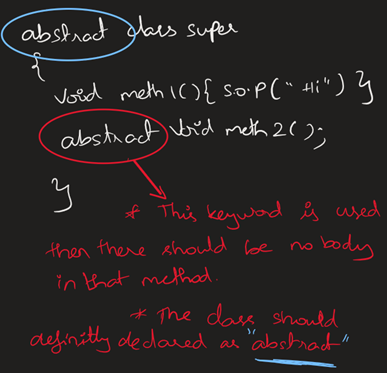 abstract class super
{
void meth1(){ S.O.P("Hi") }
abstract void meth2();
}
* This keyword is used
then there should be no body
in that method.
* The class should
definitly declared as "abstract"